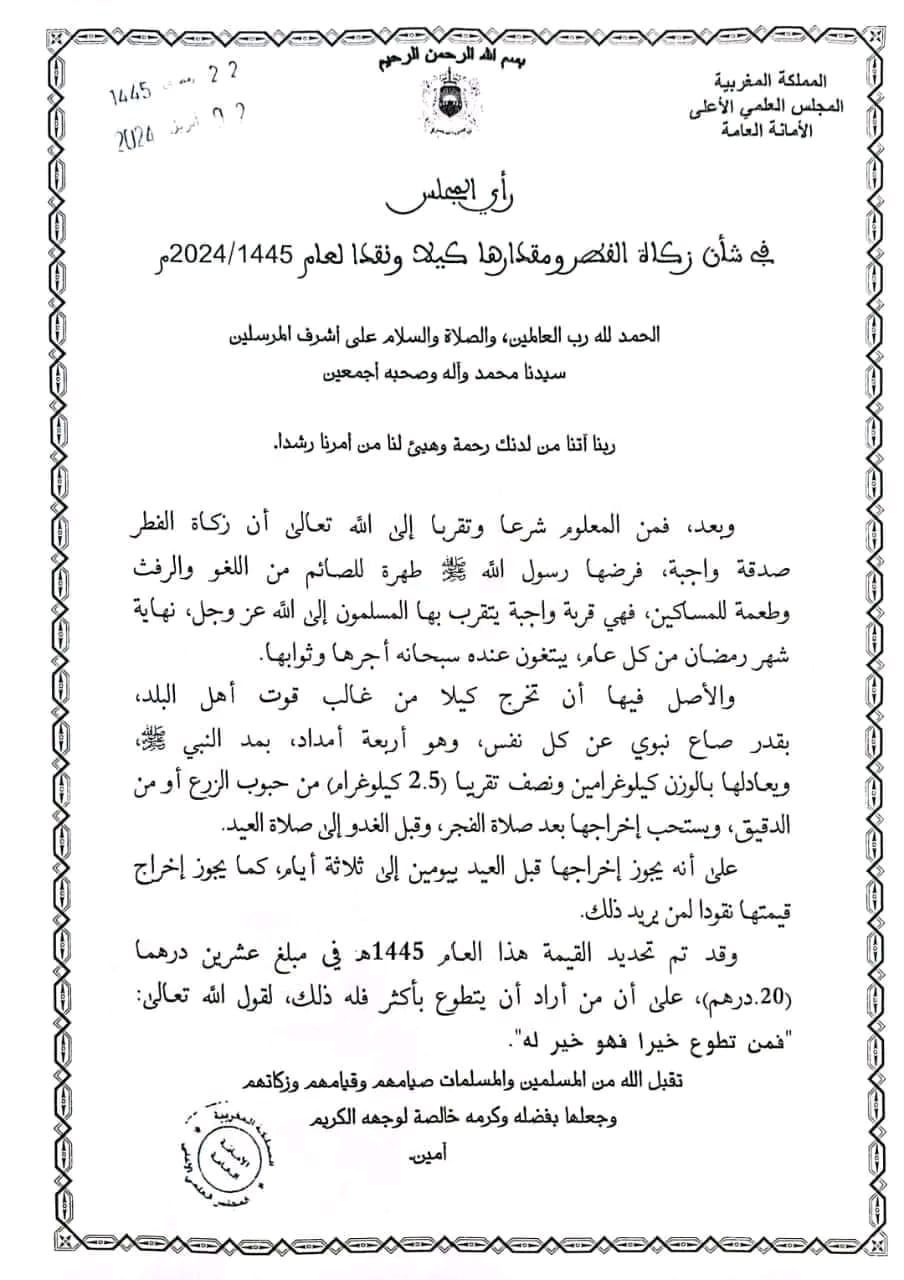 بسم الله الرحمن الرحيم
المملكة المغربية
المجلس العلمي الأعلى
الأمانة العامة
22 رمضان 1445
02 أبريل 2024
رأي المجلس
في شأن زكاة الفطر ومقدارها كيلا ونقدا لعام 2024/1445م
الحمد لله رب العالمين، والصلاة والسلام على أشرف المرسلين
سيدنا محمد وآله وصحبه أجمعين
ربنا آتنا من لدنك رحمة وهيئ لنا من أمرنا رشدا.
وبعد، فمن المعلوم شرعا وتقربا إلى الله تعالى أن زكاة الفطر
صدقة واجبة، فرضها رسول الله ﷺ طهرة للصائم من اللغو والرفث
وطعمة للمساكين، فهي قربة واجبة يتقرب بها المسلمون إلى الله عز وجل، نهاية
شهر رمضان من كل عام، يبتغون عنده سبحانه أجرها وثوابها.
والأصل فيها أن تخرج كيلا من غالب قوت أهل البلد،
بقدر صاع نبوي عن كل نفس، وهو أربعة أمداد، بمد النبي ﷺ،
ويعادلها بالوزن كيلوغرامين ونصف تقريبا (2.5 كيلوغرام) من حبوب الزرع أو من
الدقيق، ويستحب إخراجها بعد صلاة الفجر، وقبل الغدو إلى صلاة العيد.
على أنه يجوز إخراجها قبل العيد بيومين إلى ثلاثة أيام، كما يجوز إخراج
قيمتها نقودا لمن يريد ذلك.
وقد تم تحديد القيمة هذا العام 1445هـ في مبلغ عشرين درهما
(20.درهم)، على أن من أراد أن يتطوع بأكثر فله ذلك، لقول الله تعالى:
"فمن تطوع خيرا فهو خير له".
تقبل الله من المسلمين والمسلمات صيامهم وقيامهم وزكاتهم
وجعلها بفضله وكرمه خالصة لوجهه الكريم
آمين.
المملكة المغربية
الأمانة
العامة
المجلس العلمي الأعلى